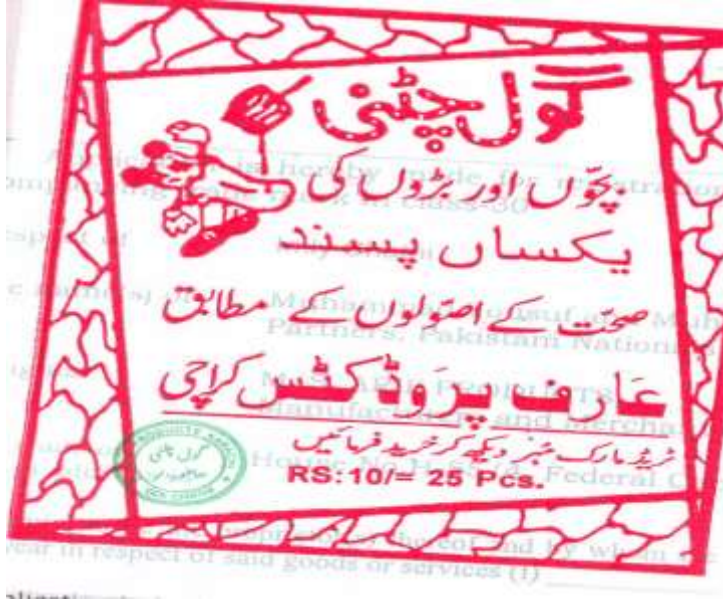 گول چٹنی
بچّوں اور بڑوں کی
یکساں پسند
صحت کے اصّولوں کے مطابق
عارف پروڈکٹس کراچی
ٹریڈ مارک نمبر دیکھ کر خرید فرمائیں
RS: 10/= 25 Pcs.
گول چٹنی
is hereby made for registration
Muhammad
Partners, Pakistani Nationals
Manufacturers and Merchants
House No.
Federal
thereof and by whom
year in respect of said goods or services (f)